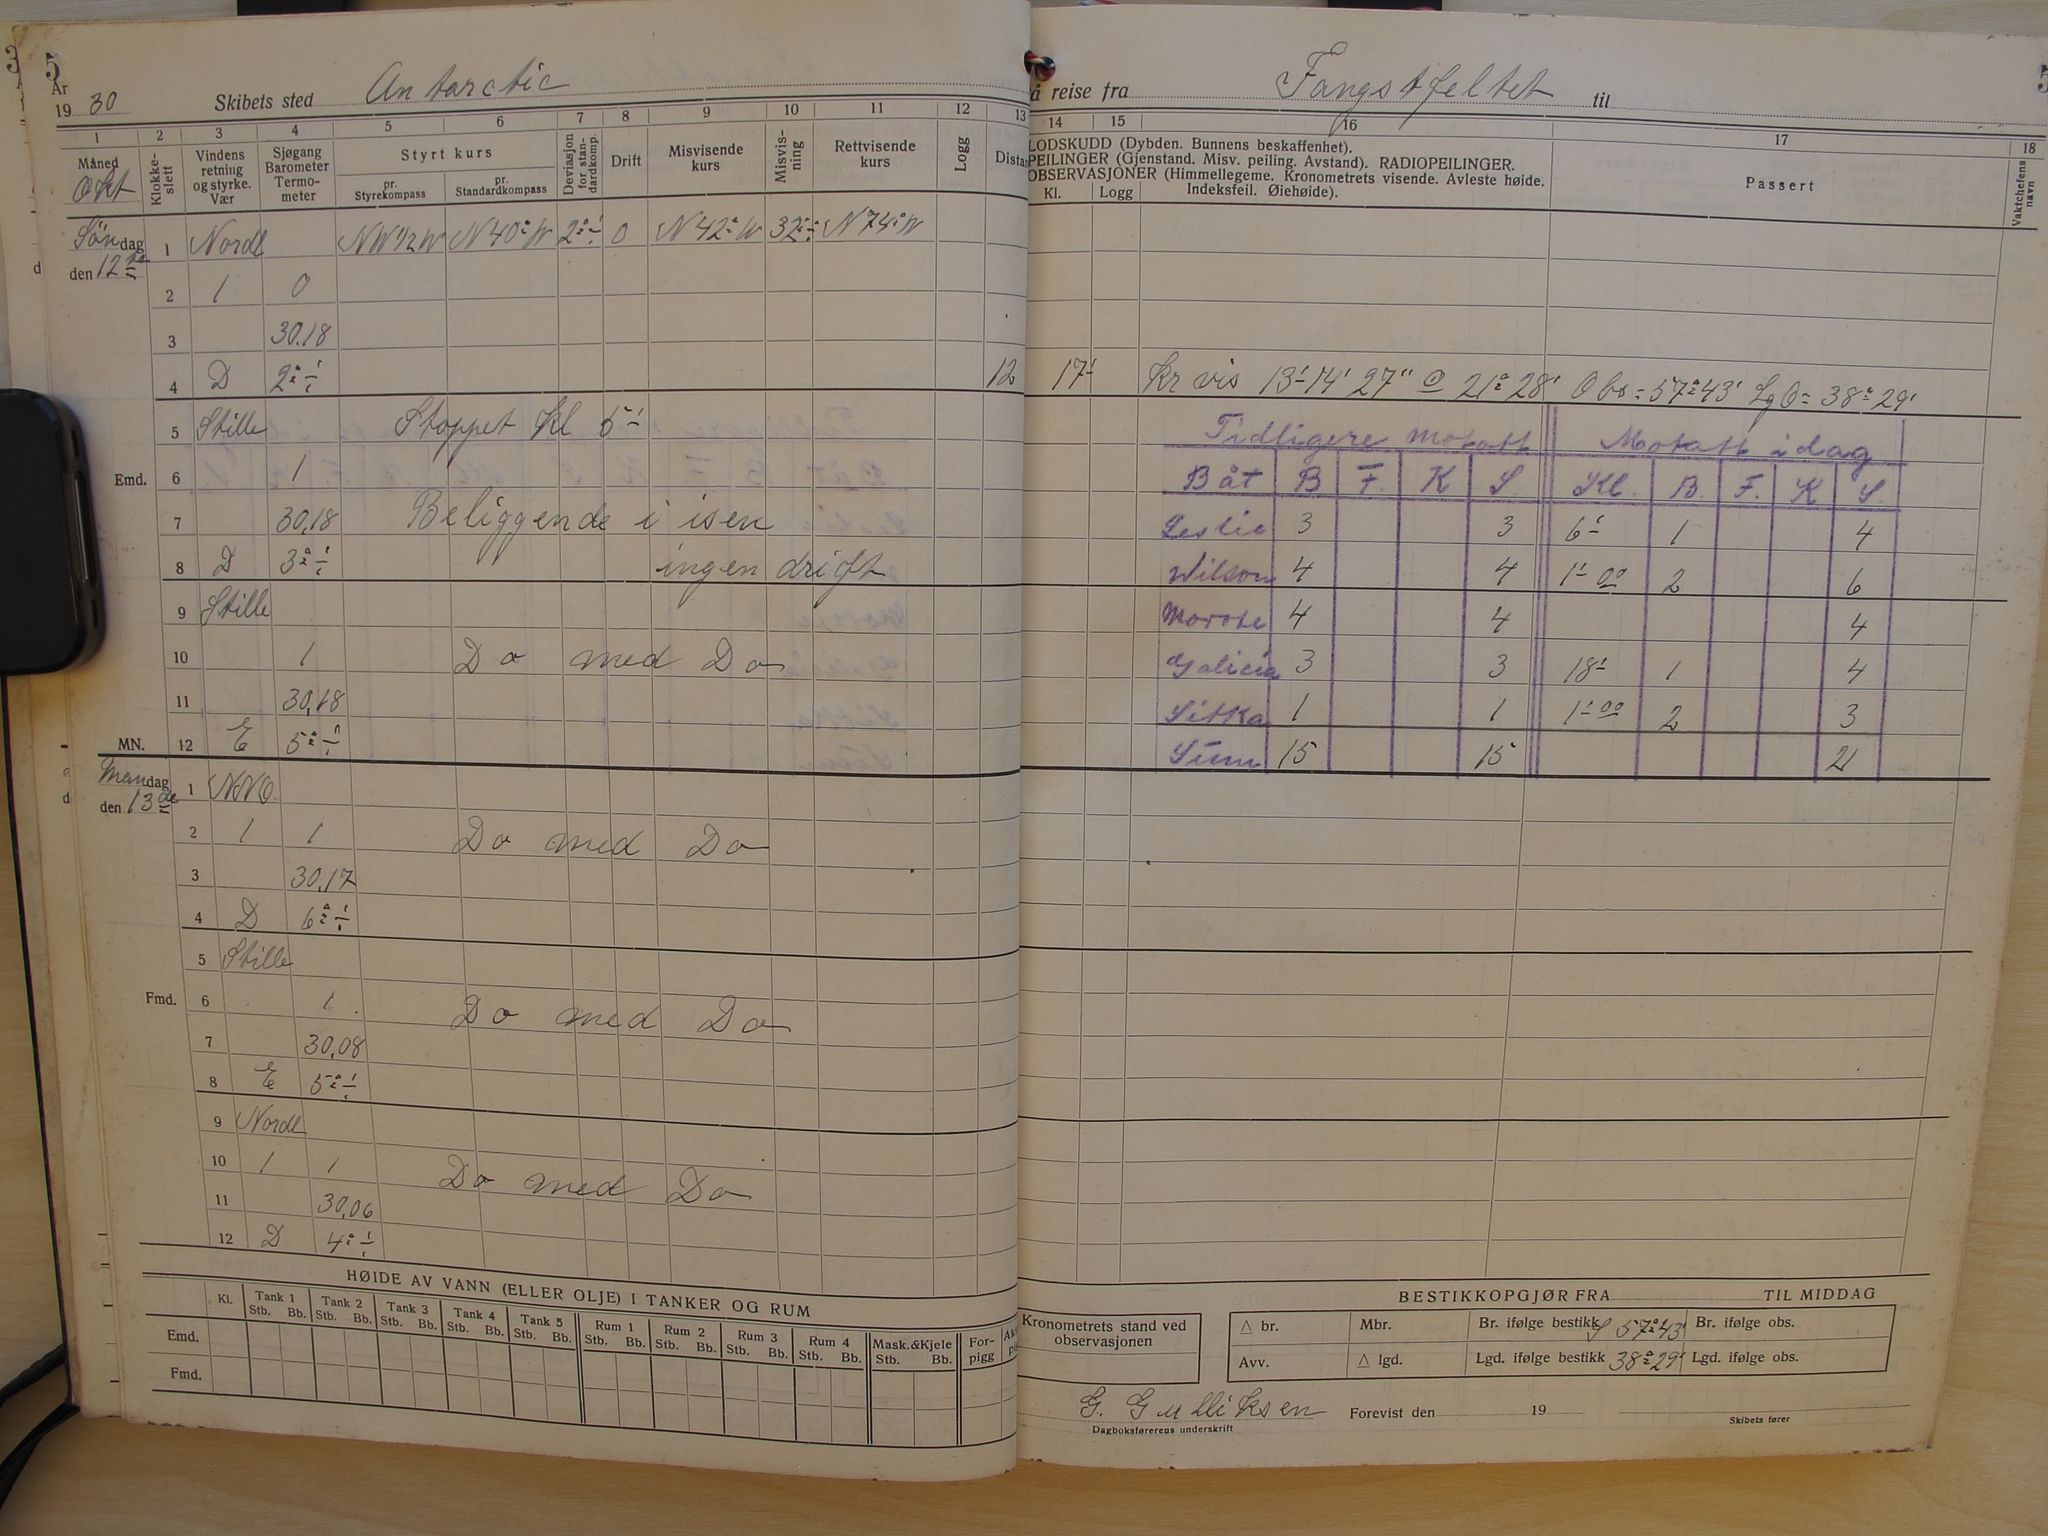 5
År
1930 Skibets sted Antarctic
å reise fra Fangstfeltet til
1 2 3 4 5 6 7 8 9 10 11 12 13 14 15 16 17 18
Måned Okt
Klokkeslett
Vindens retning og styrke. Vær
Sjøgang Barometer Termometer
Styrt kurs
pr. Styrekompass
pr. Standardkompass
Deviasjon for standardkomp.
Drift
Misvisende kurs
Misvisning
Rettvisende kurs
Logg
Distan
LODSKUDD (Dybden. Bunnens beskaffenhet).
PEILINGER (Gjenstand. Misv. peiling. Avstand). RADIOPEILINGER.
OBSERVASJONER (Himmellegeme. Kronometrets visende. Avleste høide.
Kl. Logg Indeksfeil. Øiehøide).
Passert
Vaktchefens navn
Søndag 1 Nordl NW 1/2 W N 40° W 2° 0 N 42° W 32° N 74° W
den 12te
2 1 0
3 30.18
4 D 2° 12 17 Kr vis 13 14' 27" 21° 28' Obs = 57° 43' Lg O = 38° 29'
5 Stille Stoppet Kl 5
Emd. 6 1
7 30,18 Beliggende i isen
8 D 3° ingen drift
9 Stille
10 1 Do med Do
11 30,18
MN. 12 E 5°
Tidligere Motatt Motatt i dag
Båt B. F. K S. Kl. B. F. K S.
Leslie 3 3 6 1 4
Wilson 4 4 1 00 2 6
4 4 4
Galicia 3 3 18 1 4
Sitka 1 1 1 00 2 3
Sum 15 15 21
Mandag 1 NNO
den 13de
2 1 1 Do med Do
3 30,17
4 D 6°
5 Stille
Fmd. 6 1 Do med Do
7 30,08
8 E 5°
9 Nordl
10 1 1 Do med Do
11 30,06
12 D 4°
HØIDE AV VANN (ELLER OLJE) I TANKER OG RUM
Kl. Tank 1 Tank 2 Tank 3 Tank 4 Tank 5 Rum 1 Rum 2 Rum 3 Rum 4 Mask.&Kjele Forpigg
Stb. Bb. Stb. Bb. Stb. Bb. Stb. Bb. Stb. Bb. Stb. Bb. Stb. Bb. Stb. Bb. Stb. Bb. Stb. Bb.
Emd.
Fmd.
BESTIKKOPGJØR FRA TIL MIDDAG
Kronometrets stand ved observasjonen
△ br. Mbr. Br. ifølge bestikk S 57° 43' Br. ifølge obs.
Avv. △ lgd. Lgd. ifølge bestikk 38° 29' Lgd. ifølge obs.
G. Gulliksen Forevist den 19
Dagboksførerens underskrift Skibets fører